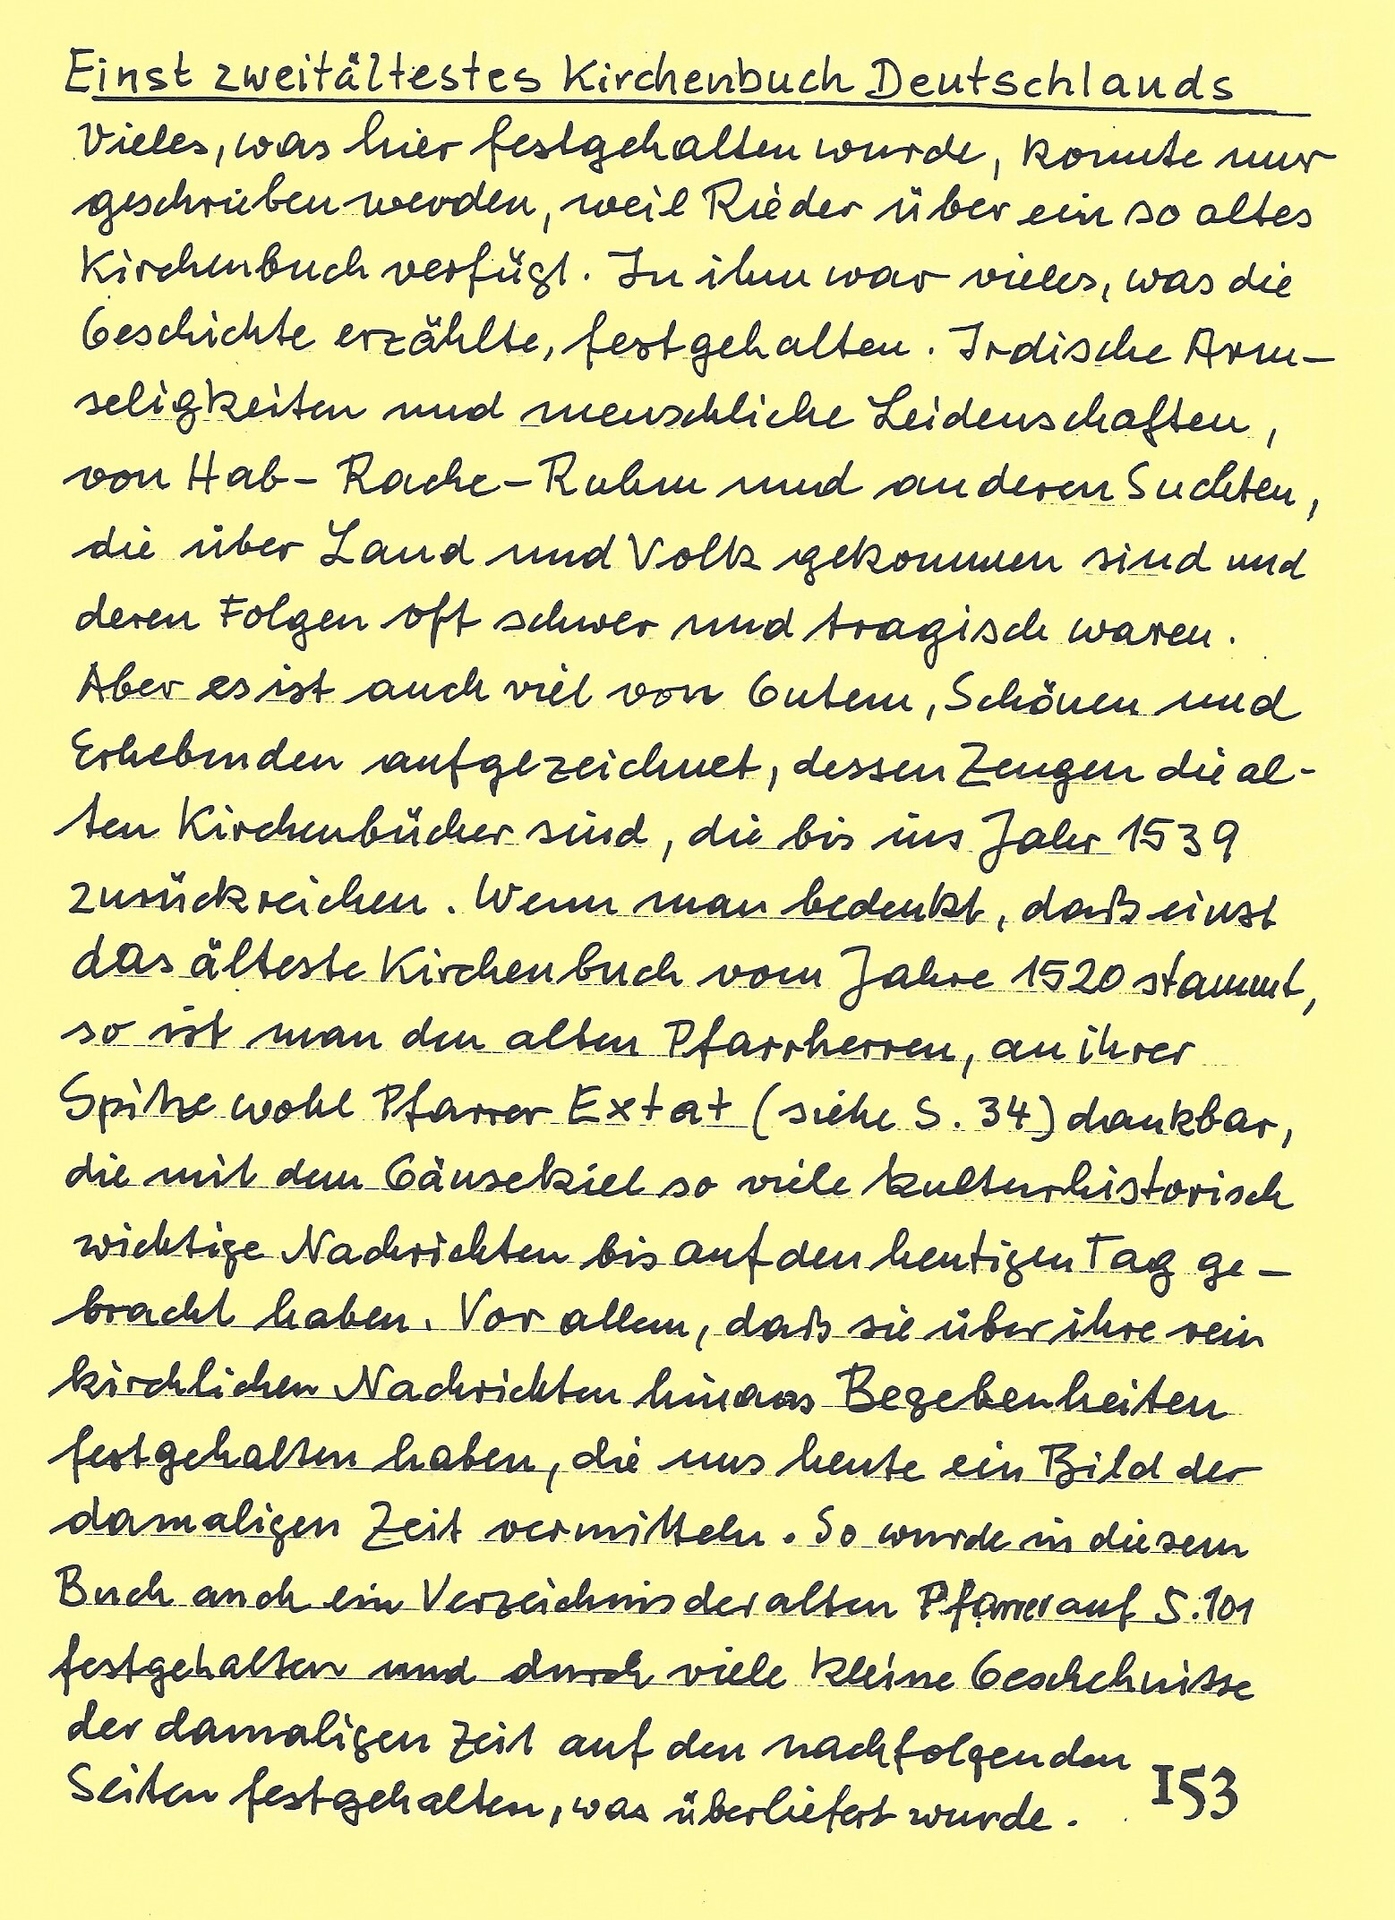 Einst zweitältestes Kirchenbuch Deutschlands
Vieles, was hier festgehalten wurde, konnte nur
geschrieben werden, weil Rieder über ein so altes
Kirchenbuch verfügt. In ihm war vieles, was die
Geschichte erzählte, festgehalten. Irdische Arm-
seligkeiten und menschliche Leidenschaften,
von Hab- Rache-Ruhm und anderen Suchten,
die über Land und Volk gekommen sind und
deren Folgen oft schwer und tragisch waren.
Aber es ist auch viel von Gutem, Schönen und
Erhebenden aufgezeichnet, dessen Zeugen die al-
ten Kirchenbücher sind, die bis ins Jahr 1539
zurückreichen. Wenn man bedenkt, daß einst
das älteste Kirchenbuch vom Jahre 1520 stammt,
so ist man den alten Pfarrherren, an ihrer
Spitze wohl Pfarrer Extat (siehe S. 34) dankbar,
die mit dem Gänsekiel so viele kulturhistorisch
wichtige Nachrichten bis auf den heutigen Tag ge-
bracht haben. Vor allem, daß sie über ihre rein
kirchlichen Nachrichten hinaus Begebenheiten
festgehalten haben, die uns heute ein Bild der
damaligen Zeit vermitteln. So wurde in diesem
Buch auch ein Verzeichnis der alten Pfarrer auf S. 101
festgehalten und durch viele kleine Geschehnisse
der damaligen Zeit auf den nachfolgenden
Seiten festgehalten, was überliefert wurde.
153